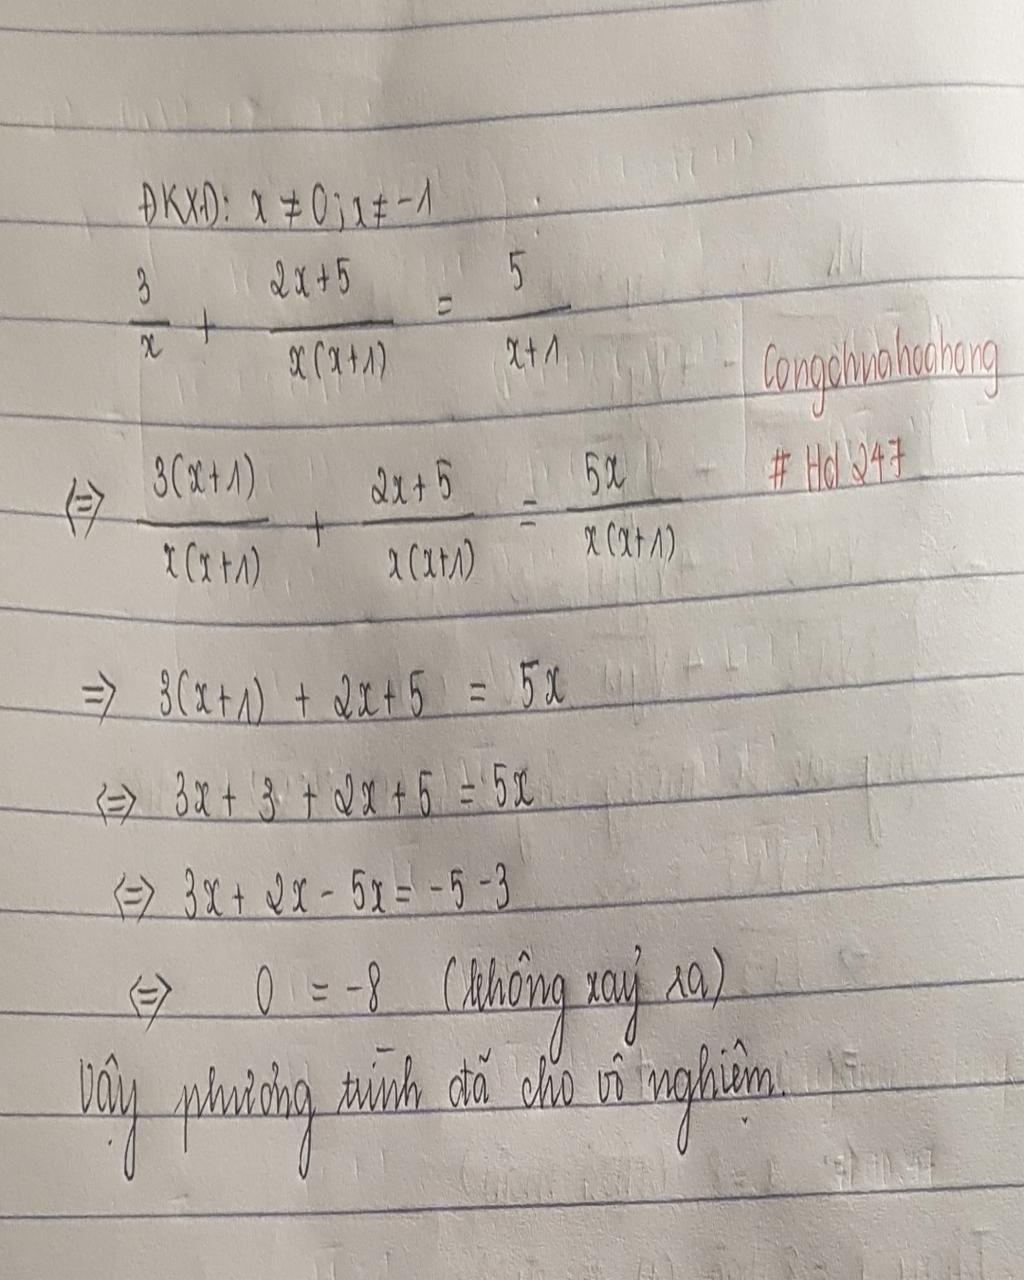 ĐKXĐ: x ≠ 0; x ≠ -1
3/x + (2x+5)/(x(x+1)) = 5/(x+1)
Congchuahoahong
# Hd 247
<=> 3(x+1)/(x(x+1)) + (2x+5)/(x(x+1)) = 5x/(x(x+1))
=> 3(x+1) + 2x+5 = 5x
<=> 3x + 3 + 2x + 5 = 5x
<=> 3x + 2x - 5x = -5 -3
<=> 0 = -8 (không xảy ra)
Vậy phương trình đã cho vô nghiệm.